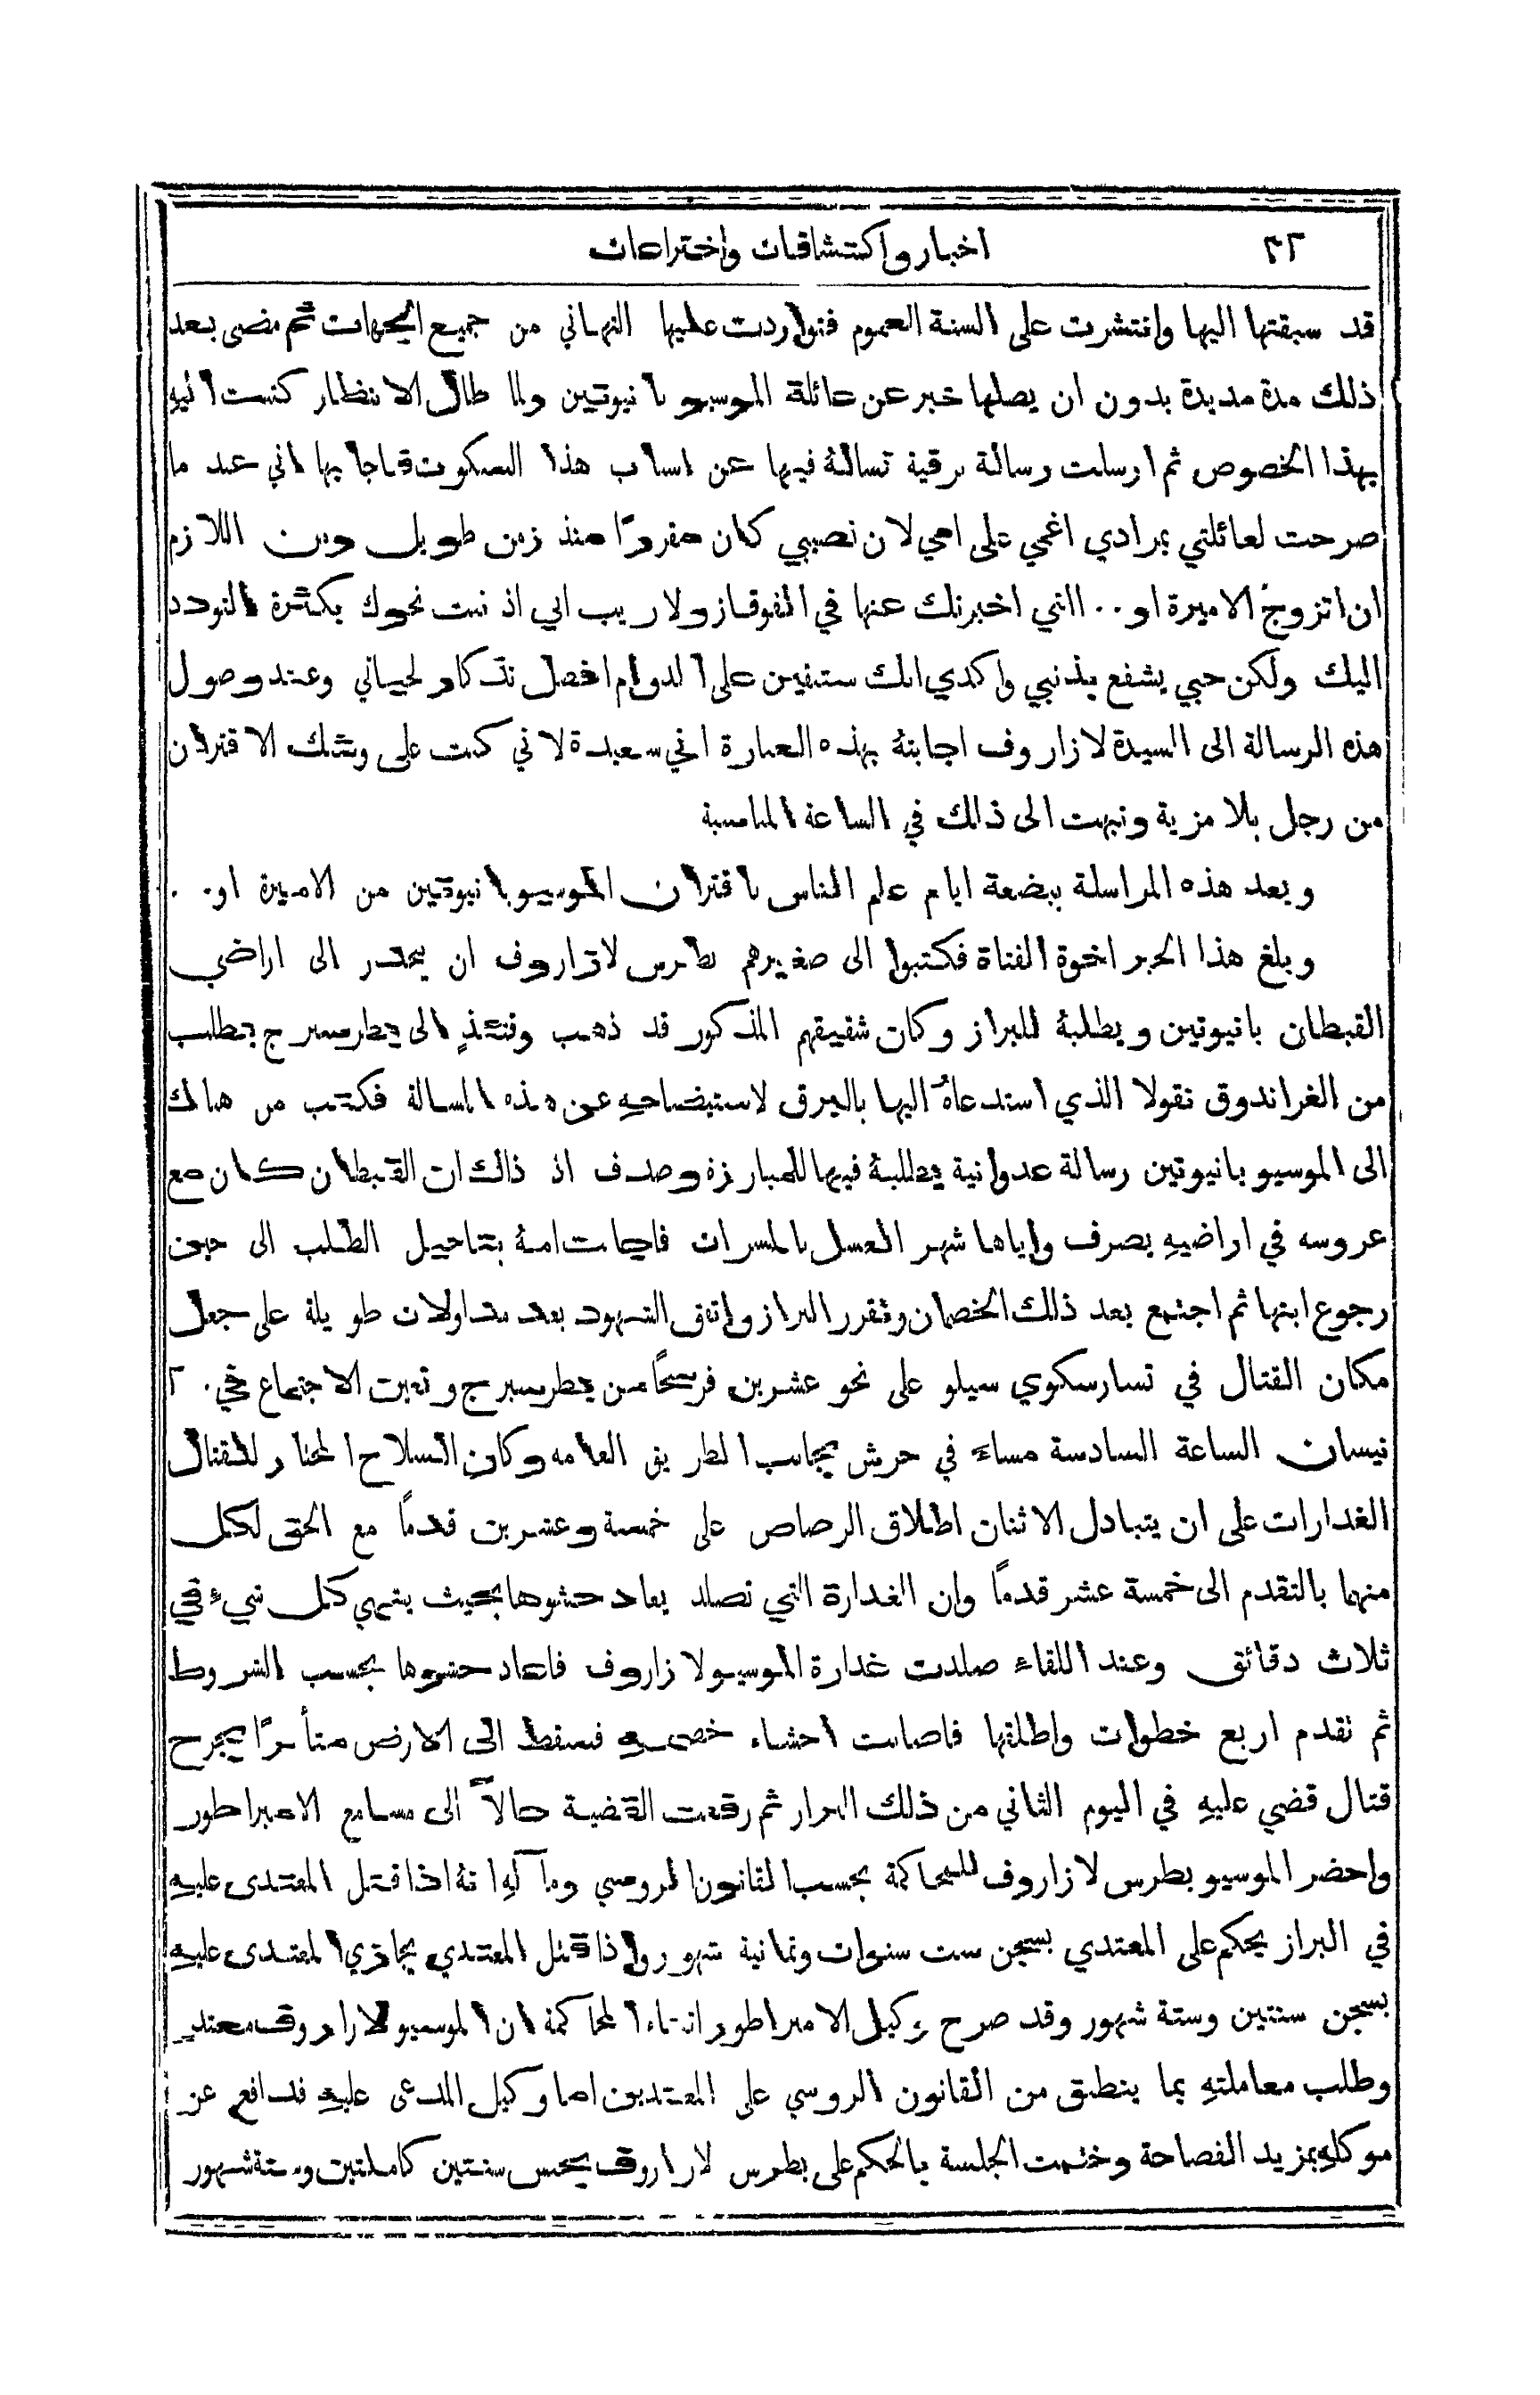 ٣٢ اخبار واكتشافات واختراعات
قد سبقتها اليها وانتشرت على السنة العموم فتواردت عليها التهاني من جميع الجهات ثم مضى بعد
ذلك مدة مديدة بدون ان يصلها خبر عن عائلة الموسيو بانيوتين ولما طال الانتظار كتبت اليهِ
بهذا الخصوص ثم ارسلت رسالة برقية تسالهُ فيها عن اسباب هذا السكوت فاجابها اني عند ما
صرحت لعائلتي بمرادي اغمي على امي لان نصيبي كان مقررًا منذ زمن طويل ومن اللازم
ان اتزوج الاميرة او . . التي اخبرتك عنها في القوقاز ولا ريب اني اذنبت نحوك بكثرة التودد
اليك ولكن حبي يشفع بذنبي واكدي انك ستبقين على الدوام افضل تذكار لحياتي وعند وصول
هذه الرسالة الى السيدة لازاروف اجابتهُ بهذه العبارة اني سعيدة لاني كنت على وشك الاقتران
من رجل بلا مزية ونبهت الى ذلك في الساعة المناسبة
وبعد هذه المراسلة ببضعة ايام علم الناس باقتران الموسيو بانيوتين من الاميرة او . .
وبلغ هذا الخبر اخوة الفتاة فكتبوا الى صغيرهم بطرس لازاروف ان يحضر الى اراضي
القبطان بانيوتين ويطلبهُ للبراز وكان شقيقهم المذكور قد ذهب وقتئذٍ الى بطرسبرج بطلب
من الغراندوق نقولا الذي استدعاهُ اليها بالبرق لاستيضاحهِ عن هذه المسالة فكتب من هناك
الى الموسيو بانيوتين رسالة عدوانية يطلبهُ فيها للمبارزة وصدف اذ ذاك ان القبطان كان مع
عروسه في اراضيهِ يصرف واياها شهر العسل بالمسرات فاجابت امهُ بتاجيل الطلب الى حين
رجوع ابنها ثم اجتمع بعد ذلك الخصمان وتقرر البراز واتفق الشهود بعد مداولات طويلة على جعل
مكان القتال في تسارسكوي سيلو على نحو عشرين فرسخًا من بطرسبرج وتعين الاجتماع في ٢٠
نيسان الساعة السادسة مساءً في حرش بجانب الطريق العامه وكان السلاح المختار للقتال
الغدارات على ان يتبادل الاثنان اطلاق الرصاص على خمسة وعشرين قدمًا مع الحق لكل
منها بالتقدم الى خمسة عشر قدمًا وان الغدارة التي تصلد يعاد حشوها بحيث ينتهي كل شيء في
ثلاث دقائق وعند اللقاء صلدت غدارة الموسيو لازاروف فاعاد حشوها بحسب الشروط
ثم تقدم اربع خطوات واطلقها فاصابت احشاء خصمهِ فسقط الى الارض متأثرًا بجرح
قتال قضي عليهِ في اليوم الثاني من ذلك البراز ثم رفعت القضية حالاً الى مسامع الامبراطور
واحضر الموسيو بطرس لازاروف للمحاكمة بحسب القانون الروسي ومآلهِ انهُ اذا قتل المعتدى عليهِ
في البراز يحكم على المعتدي بسجن ست سنوات وثمانية شهور واذا قتل المعتدي يجازى المعتدى عليهِ
بسجن سنتين وستة شهور وقد صرح وكيل الامبراطور اثناء المحاكمة ان الموسيو لازاروف معتدٍ
وطلب معاملتهِ بما ينطبق من القانون الروسي على المعتدين اما وكيل المدعى عليهِ فدافع عن
موكلهِ بمزيد الفصاحة وختمت الجلسة بالحكم على بطرس لازاروف بحبس سنتين كاملتين وستة شهور